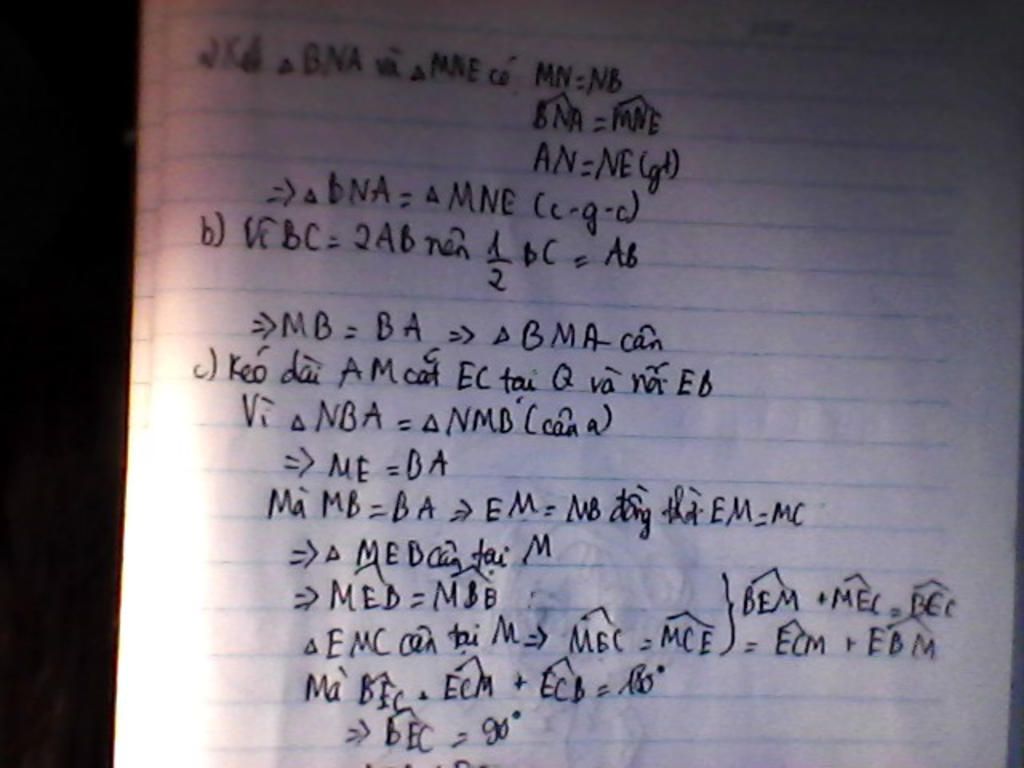 a) Xét △BNA và △MNE có MN=NB
BNA = MNE
AN=NE(gt)
=> △BNA = △MNE (c-g-c)
b) Vì BC = 2AB nên 1/2 BC = AB
=> MB = BA => △BMA cân
c) Kéo dài AM cắt EC tại Q và nối EB
Vì △NBA = △NMB (câu a)
=> ME = BA
Mà MB = BA => EM = MB đồng thời EM=MC
=> △MEB cân tại M
=> MEB = MBE } BEM + MEC = BEC
△EMC cân tại M => MEC = MCE } = ECM + EBM
Mà BEC + ECM + ECB = 180°
=> BEC = 90°